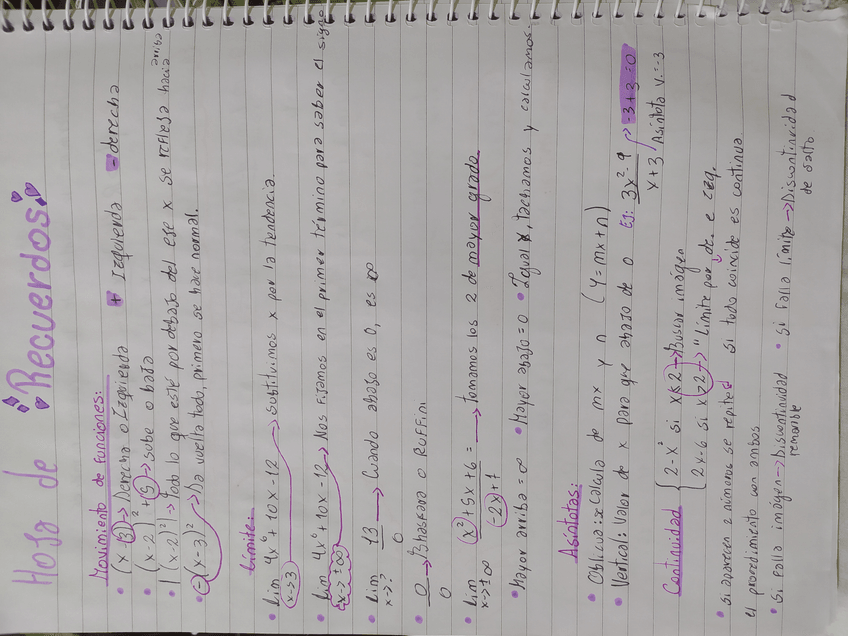 Hoja de Recuerdos
Movimiento de funciones: + Izquierda - derecha
• (x-3)² → Derecha o Izquierda
• (x-2)² + 5 → Sube o baja
• |(x-2)²| → todo lo que esté por debajo del ese x se refleja hacia arriba
• -(x-3)² → Da vuelta todo, primero se hace normal.
Límite:
• Lim 4x⁶ + 10x - 12 → Substituimos x por la tendencia.
x→3
• Lim 4x⁶ + 10x - 12 → Nos fijamos en el primer término para saber el signo
x→±∞
• Lim 13 → Cuando abajo es 0, es ∞
x→? 0
• 0 → Bhaskara o Ruffini
0
• Lim x² + 5x + 6 = → tomamos los 2 de mayor grado.
x→±∞ -2x + 1
• Mayor arriba = ∞ • Mayor abajo = 0 • Igual x, tachamos y calculamos.
Asíntotas:
• Oblicua: x calculo de mx y n (y = mx + n)
• Vertical: Valor de x para que abajo de 0 Ej: 3x² - 9 → -3+3=0
x + 3 Asíntota V. = -3
Continuidad { 2 - x² si x < 2 → Buscar imágen
2x - 6 si x > 2 → " Límite por de. e izq.
• Si aparecen 2 números se repite el procedimiento con ambos Si todo coincide es continua
• Si falla imágen → Discontinuidad removible • Si falla límite → Discontinuidad de salto